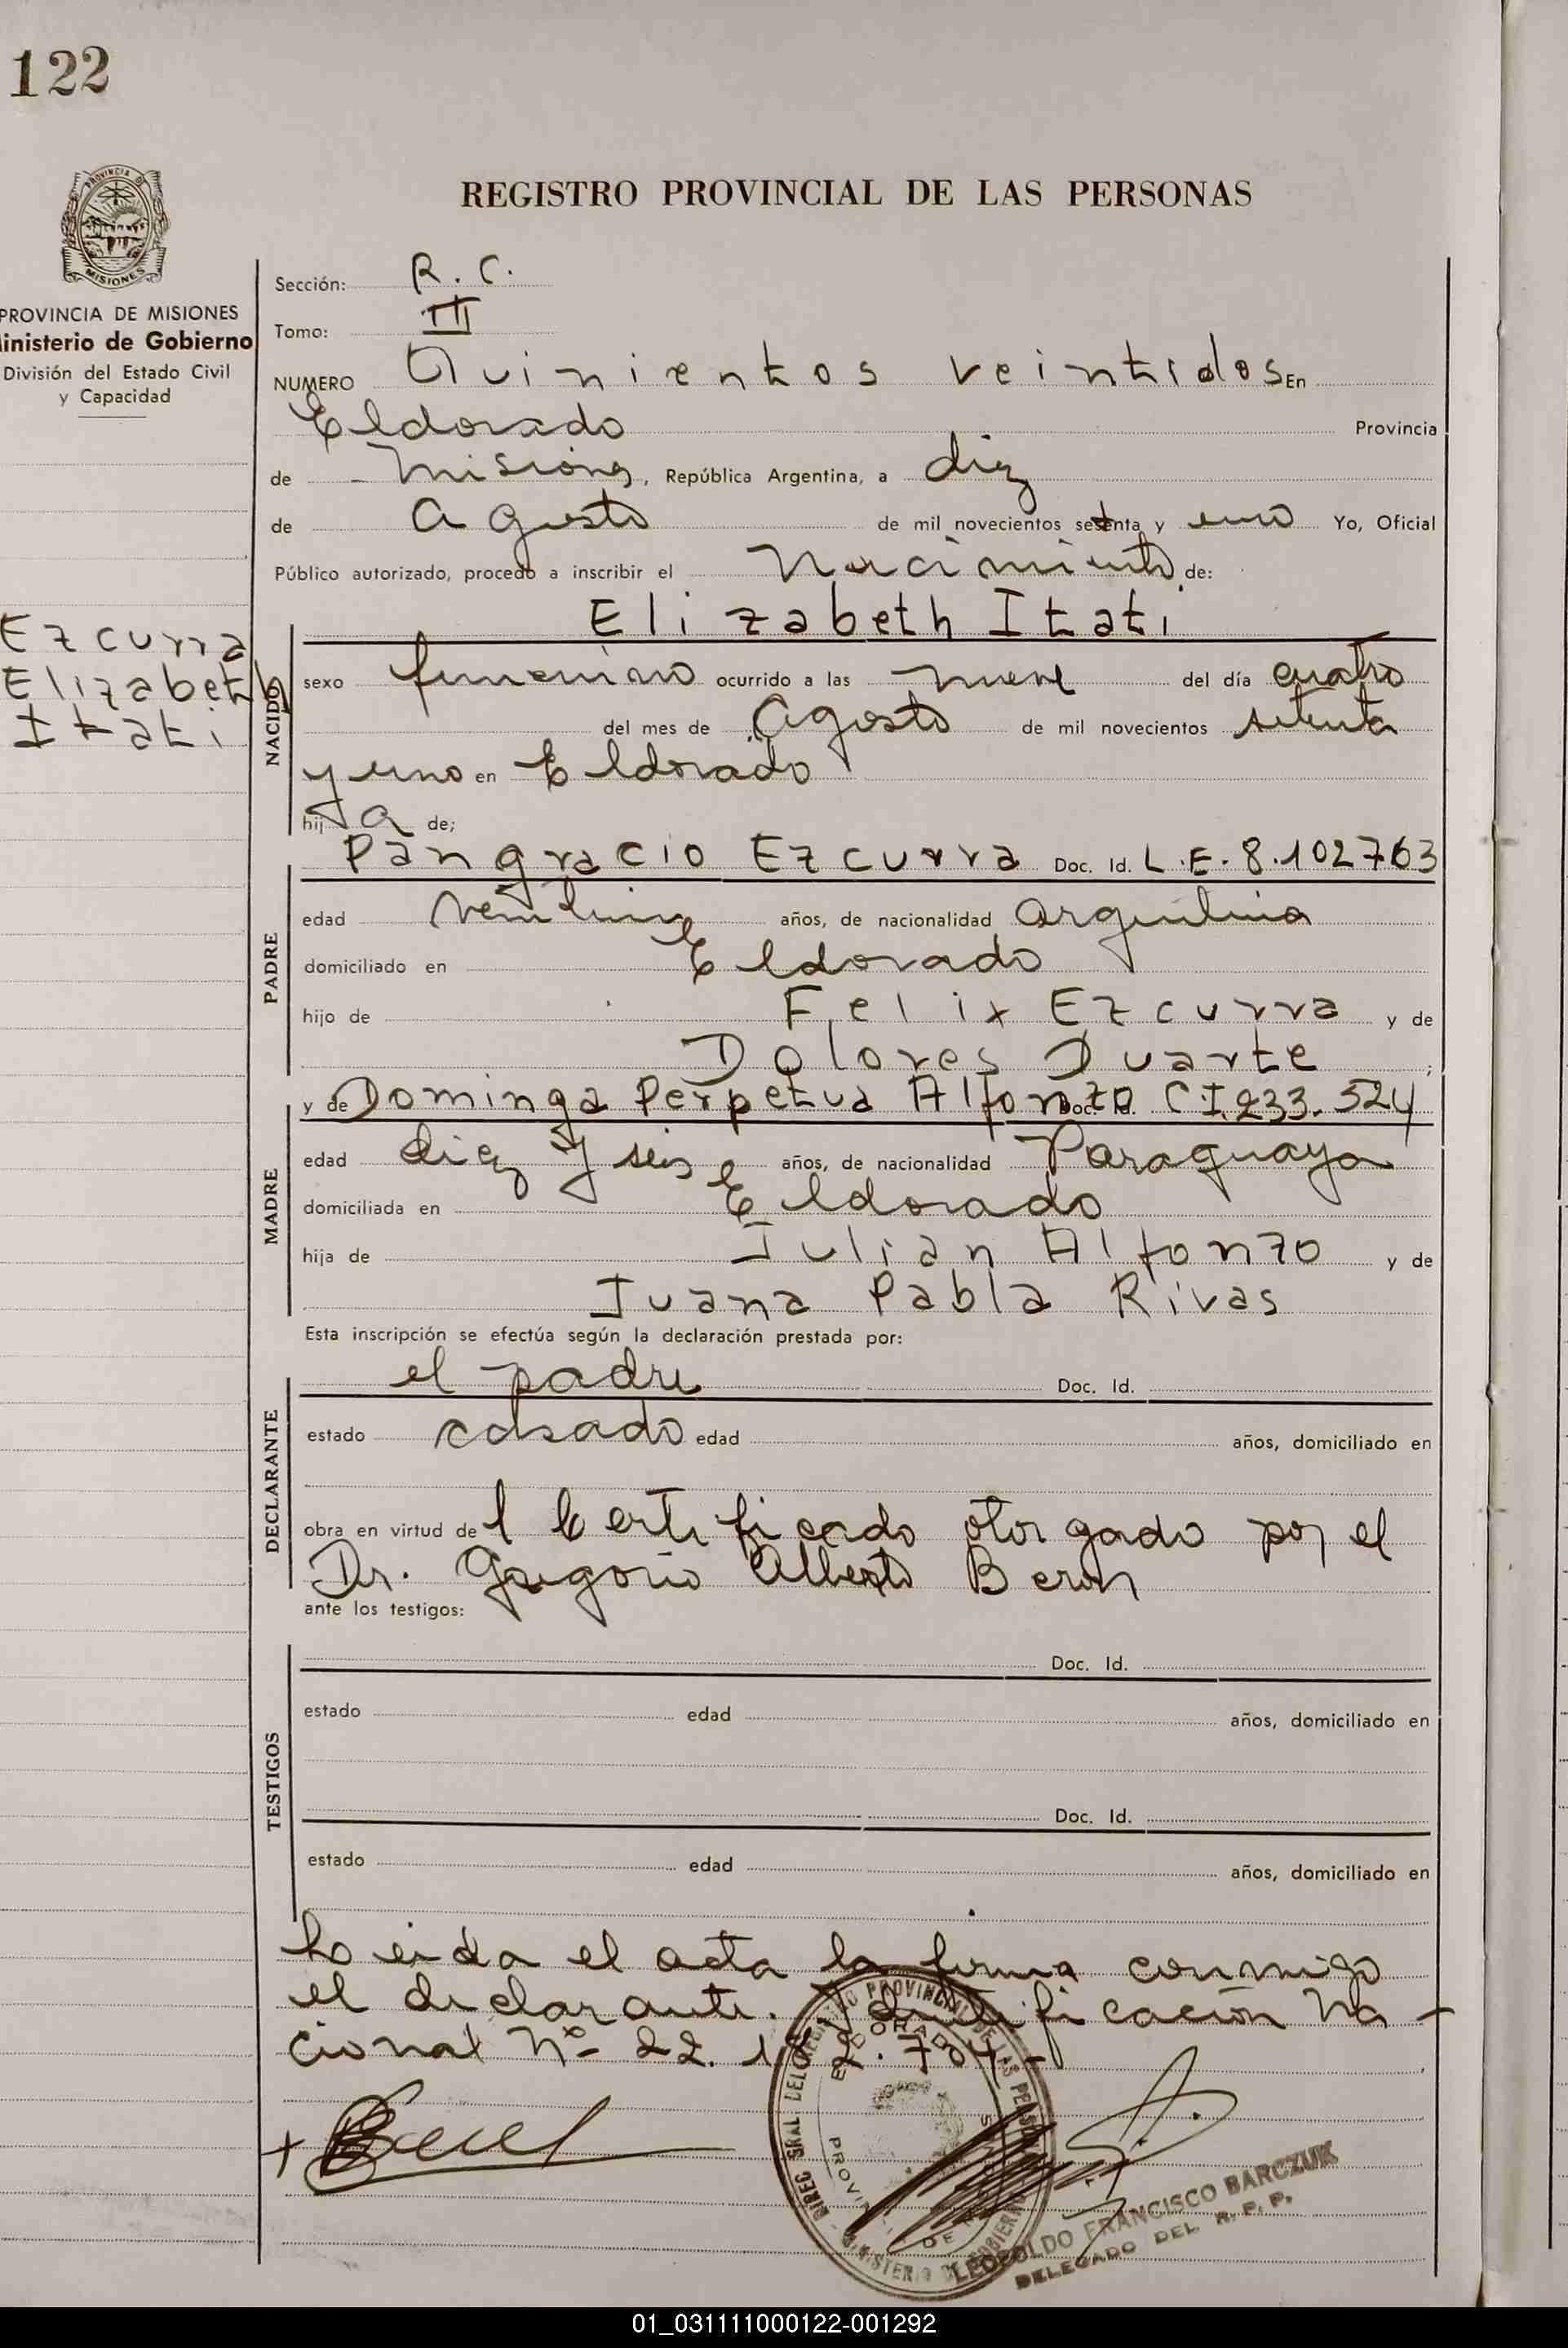 122
PROVINCIA DE
MISIONES
PROVINCIA DE MISIONES
inisterio de Gobierno
División del Estado Civil
y Capacidad
REGISTRO PROVINCIAL DE LAS PERSONAS
Sección: R. C.
Tomo: III
NUMERO Quinientos veintidos En
Eldorado Provincia
de Misiones, República Argentina, a diez
de Agosto de mil novecientos setenta y uno Yo, Oficial
Público autorizado, procedo a inscribir el Nacimiento de:
Elizabeth Itati
Ezcurra
Elizabeth
Itati
NACIDO
sexo femenino ocurrido a las nueve del día cuatro
del mes de Agosto de mil novecientos setenta
y uno en Eldorado
hija de;
Pangracio Ezcurra Doc. Id. L.E. 8.102763
PADRE
edad años, de nacionalidad argentina
domiciliado en Eldorado
hijo de Felix Ezcurra y de
Dolores Duarte ;
y de Dominga Perpetua Alfonzo Doc. Id. C.I. 233.524
MADRE
edad diez y seis años, de nacionalidad Paraguaya
domiciliada en Eldorado
hija de Julian Alfonzo y de
Juana Pabla Rivas
Esta inscripción se efectúa según la declaración prestada por:
el padre Doc. Id.
DECLARANTE
estado casado edad años, domiciliado en
obra en virtud del Certificado otorgado por el
Dr. Gregorio Alberto Beron
ante los testigos:
Doc. Id.
TESTIGOS
estado edad años, domiciliado en
Doc. Id.
estado edad años, domiciliado en
Leida el acta la firma conmigo
el declarante. Identificación Na-
cional Nº 22.182.734.-
LEOPOLDO FRANCISCO BARCZUK
DELEGADO DEL R. P. P.
01_031111000122-001292